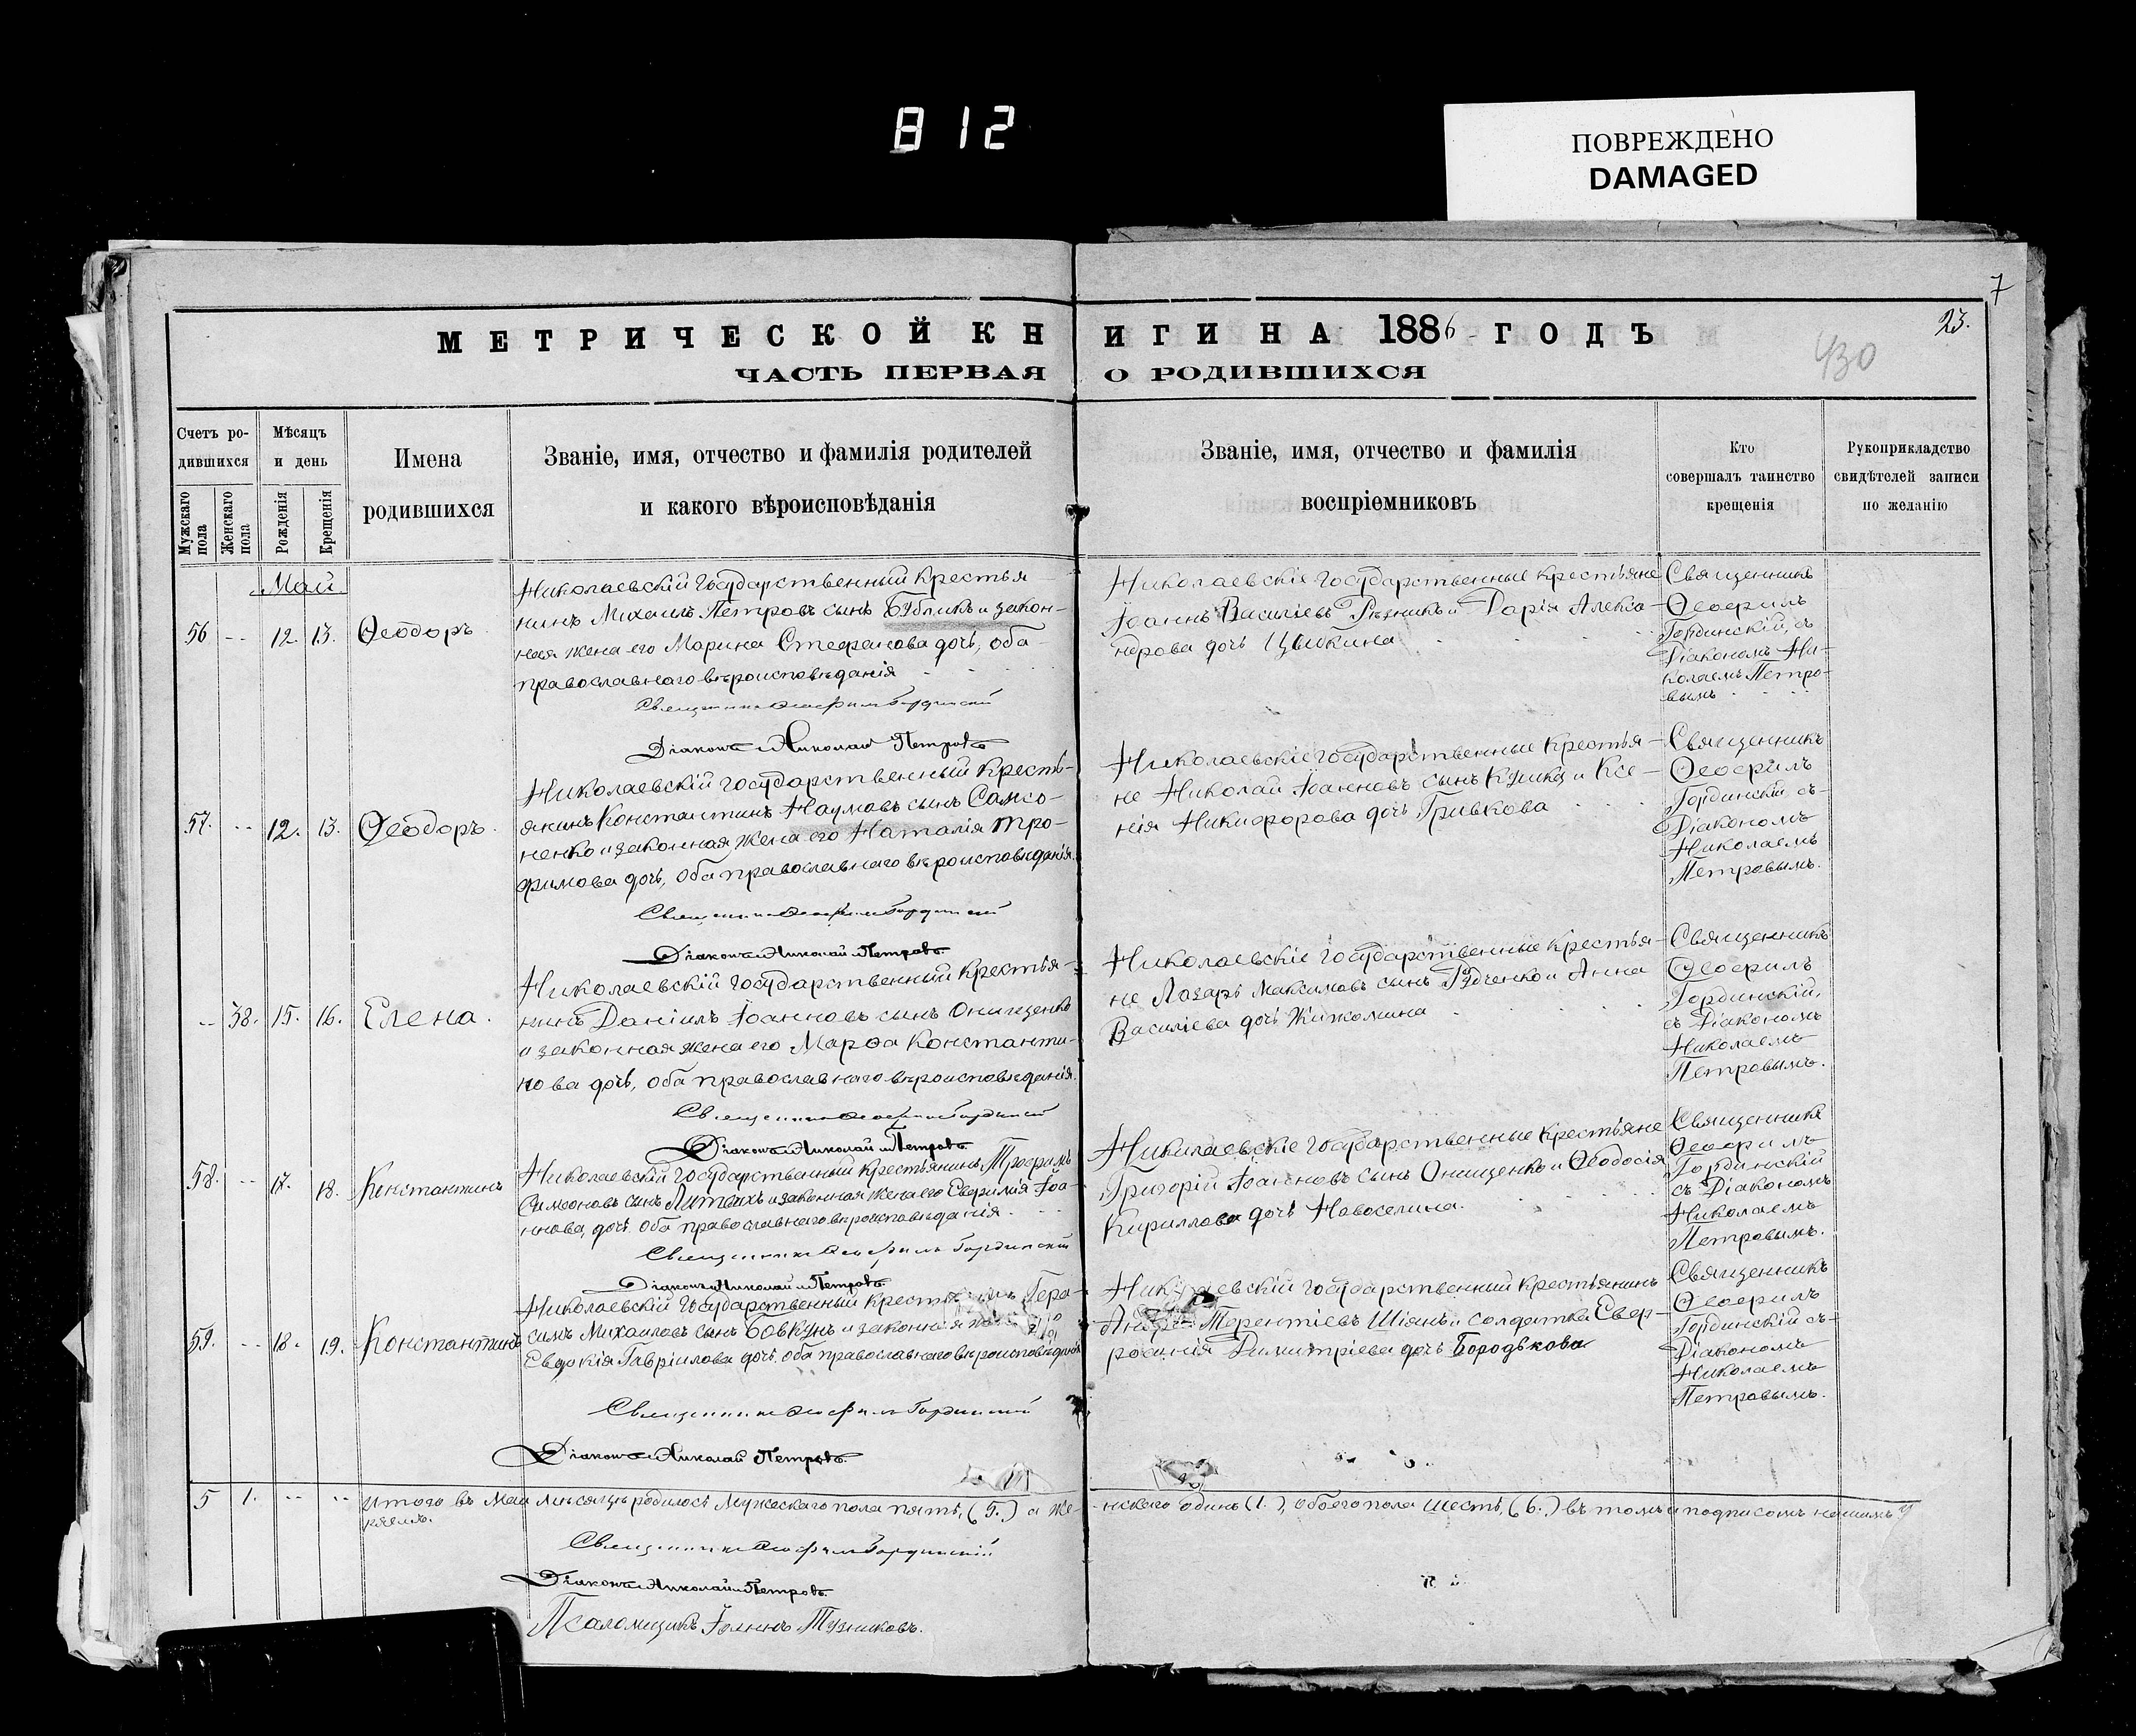 812
ПОВРЕЖДЕНО
DAMAGED
7
23.
430
МЕТРИЧЕСКОЙ КНИГИ НА 1886 ГОДЪ
ЧАСТЬ ПЕРВАЯ О РОДИВШИХСЯ
Счетъ родившихся
Мужскаго пола
Женскаго пола
Мѣсяцъ и день
Рожденія
Крещенія
Имена родившихся
Званіе, имя, отчество и фамилія родителей
и какого вѣроисповѣданія
Званіе, имя, отчество и фамилія
воспріемниковъ
Кто
совершалъ таинство
крещенія
Рукоприкладство
свидѣтелей записи
по желанію
Май
56 -- 12. 13. Ѳеодоръ
Николаевскій государственный крестья
нинъ Михаилъ Петровъ сынъ Бубликъ и закон-
ная жена его Марина Стефанова дочь, оба
православнаго вѣроисповѣданія
Священникъ Ѳеофилъ Гординскій
Діаконъ Николай Петровъ
Николаевскіе государственные крестьяне
Іоаннъ Василіевъ Рѣзникъ и Дарія Алекса-
ндрова дочь Цыикина
Священникъ
Ѳеофилъ
Гординскій, съ
Діакономъ Ни-
колаемъ Петро-
вымъ
57. -- 12. 13. Ѳеодоръ.
Николаевскій государственный кресть-
янинъ Константинъ Наумовъ сынъ Самсо-
ненко и законная жена его Наталія Тро-
фимова дочь, оба православнаго вѣроисповѣданія.
Священникъ Ѳеофилъ Гординскій
Діаконъ Николай Петровъ
Николаевскіе государственные крестья-
не Николай Іоанновъ сынъ Кушка и Ксе-
нія Никифорова дочь Гривкова
Священникъ
Ѳеофилъ
Гординскій съ
Діакономъ
Николаемъ
Петровымъ.
-- 38. 15. 16. Елена.
Николаевскій государственный крестья-
нинъ Даніилъ Іоанновъ сынъ Онищенко
и законная жена его Марѳа Константи-
нова дочь, оба православнаго вѣроисповѣданія.
Священникъ Ѳеофилъ Гординскій
Діаконъ Николай Петровъ
Николаевскіе государственные крестья-
не Лазарь Максимовъ сынъ Рудченко и Анна
Василіева дочь Жижомина
Священникъ
Ѳеофилъ
Гординскій,
съ Діакономъ
Николаемъ
Петровымъ.
58. -- 17. 18. Константинъ
Николаевскій государственный крестьянинъ Трофимъ
Симеоновъ сынъ Литвихъ и законная жена его Евфимія Іоа-
ннова, дочь оба православнаго вѣроисповѣданія.
Священникъ Ѳеофилъ Гординскій
Діаконъ Николай Петровъ
Николаевскіе государственные крестьяне
Григорій Іоанновъ сынъ Онищенко и Ѳеодосія
Кириллова дочь Новоселина.
Священникъ
Ѳеофилъ
Гординскій
съ Діакономъ
Николаемъ
Петровымъ.
59. -- 18. 19. Константинъ
Николаевскій государственный крестьянинъ Гера-
симъ Михаиловъ сынъ Бовкунъ и законная жена его
Евдокія Гавріилова дочь, оба православнаго вѣроисповѣданія
Священникъ Ѳеофилъ Гординскій
Діаконъ Николай Петровъ
Николаевскій государственный крестьянинъ
Андрей Терентіевъ Шіянъ и солдатка Евф-
росинія Димитріева дочь Бородькова
Священникъ
Ѳеофилъ
Гординскій съ-
Діакономъ
Николаемъ
Петровымъ.
5 1. -- -- Итого въ Маи мѣсяцѣ родилось мужескаго пола пять, (5.) а же-нскаго одинъ (1.), обоего пола шесть, (6.) въ томъ и подписомъ нашимъ
Священникъ Ѳеофилъ Гординскій
Діаконъ Николай Петровъ
Псаломщикъ Іоаннъ Тузниковъ.